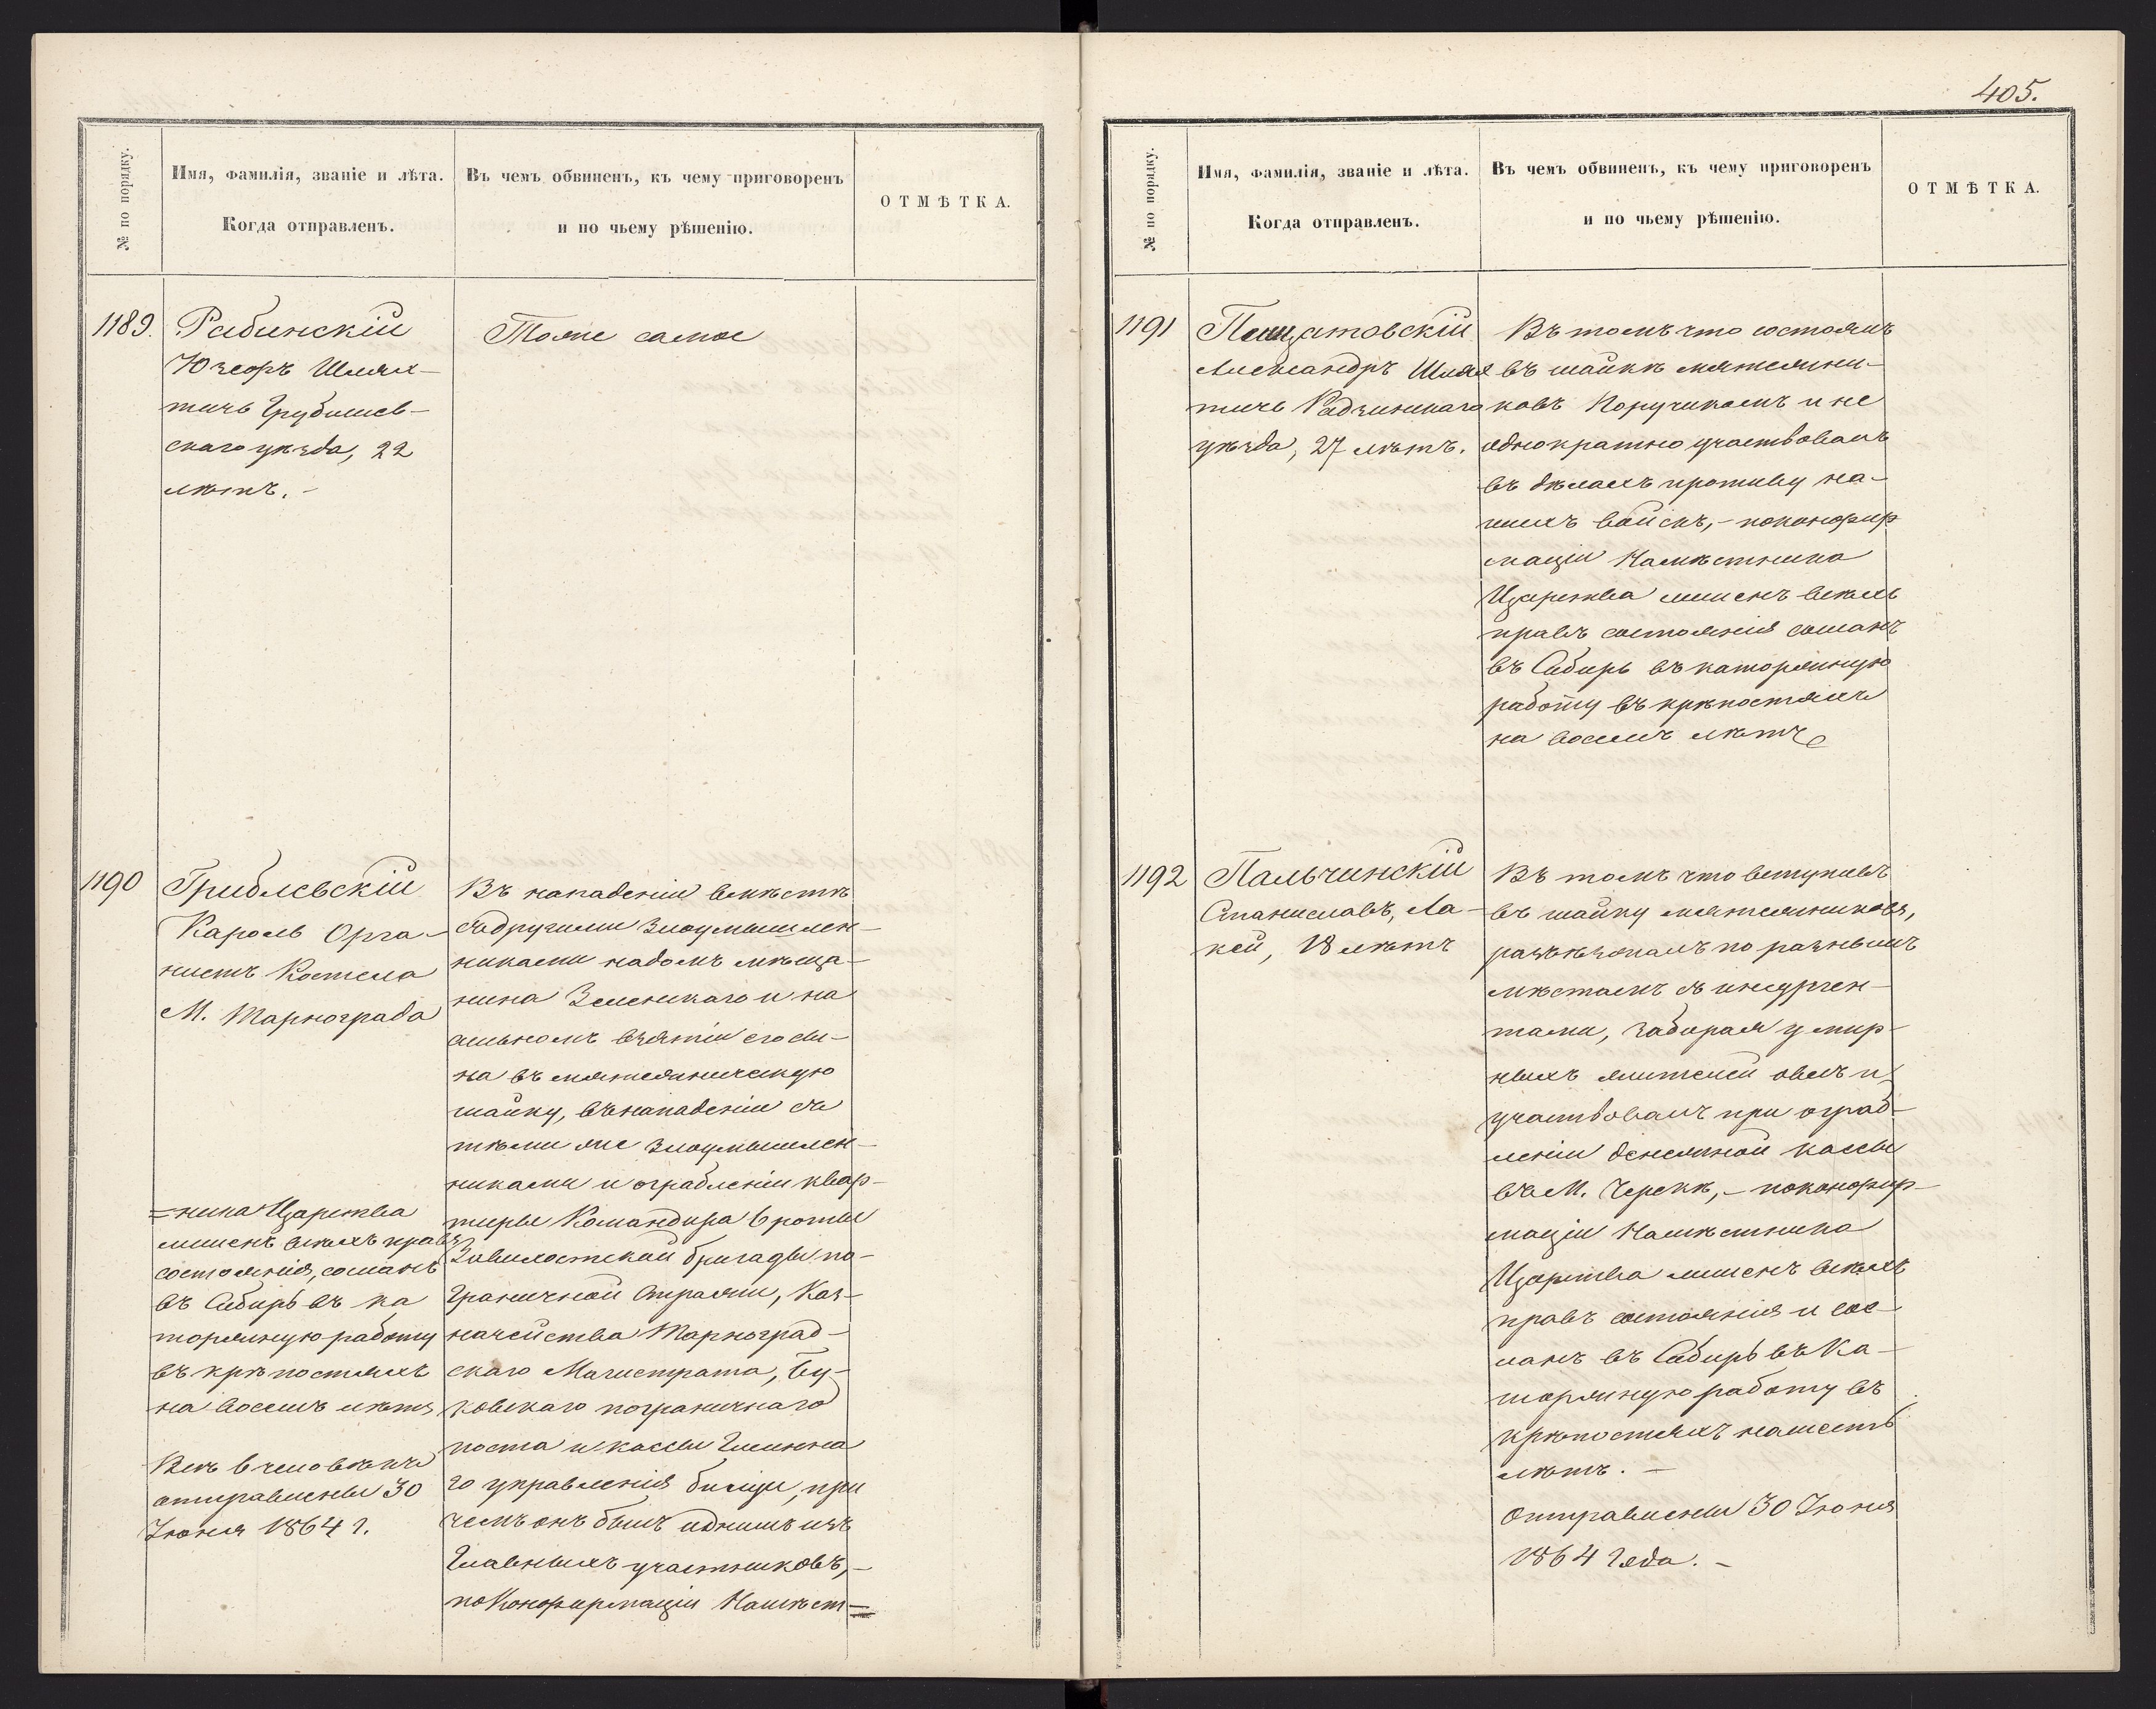 № по порядку.
Имя, фамилія, званіе и лѣта.
Когда отправленъ.
Въ чемъ обвиненъ, къ чему приговоренъ
и по чьему рѣшенію.
ОТМѢТКА.
1189.
Рабинскій
Юзефъ Шлях-
тичь Грубешев-
скаго уѣзда, 22
лѣтъ. -
Тоже самое
1190
Гриблевскій
Кароль Орга-
нистъ Костела
М. Тарнограда
Въ нападеніи вмѣстѣ
съ другими злоумышлен-
никами на домъ мѣща-
нина Зеленскаго и на
сильномъ взятіи его сы-
на въ мятежническую
шайку, въ нападеніи съ
тѣми же злоумышлен-
никами и ограбленіи квар-
тиры Командира 6 роты
Завихостской бригады по-
граничной Стражи, Каз-
начейства Тарноград-
скаго Магистрата,
ковскаго пограничнаго
поста и кассы Гминна
го управленія при
чемъ онъ былъ однимъ изъ
Главныхъ участниковъ, -
по Конфирмаціи Намѣст=
=ника Царства
лишенъ всѣхъ правъ
состоянія, сосланъ
въ Сибирь въ ка
торжную работу
въ крѣпостяхъ
на восемь лѣтъ
Всѣ человѣкъ
отправлены 30
Іюня 1864 г.
405.
№ по порядку.
Имя, фамилія, званіе и лѣта.
Когда отправленъ.
Въ чемъ обвиненъ, къ чему приговоренъ
и по чьему рѣшенію.
ОТМѢТКА.
1191
Александръ Шлях
тичь Радзинскаго
уѣзда, 27 лѣтъ.
Въ томъ что состоялъ
въ шайкѣ мятежни-
ковъ Поручикомъ и не
однократно участвовалъ
въ дѣлахъ противу на-
шихъ войскъ, - по конфир
маціи Намѣстника
Царства лишенъ всѣхъ
правъ состоянія сосланъ
въ Сибирь въ каторжную
работу въ крѣпостяхъ
на восемь лѣтъ
1192
Пальчинскій
Станиславъ, Ла-
кей, 18 лѣтъ
Въ томъ что вступивъ
въ шайку мятежниковъ,
разъѣзжалъ по разнымъ
мѣстамъ съ инсурген-
тами, забирая у мир-
ныхъ жителей овесъ и
участвовалъ при ограб-
леніи денежной кассы
въ М. - по конфир-
маціи Намѣстника
Царства лишенъ всѣхъ
правъ состоянія и сос-
ланъ въ Сибирь въ Ка-
торжную работу въ
крѣпостяхъ на шесть
лѣтъ. -
Отправлены 30 Іюня
1864 Года. -